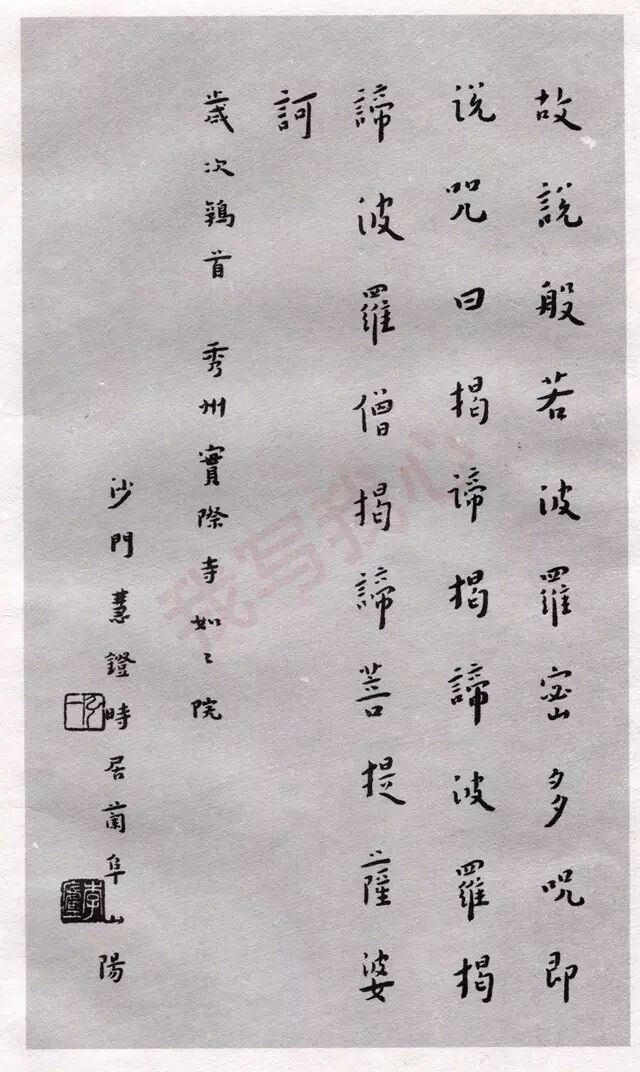 故說般若波羅密多咒即
說咒曰揭諦揭諦波羅揭
諦波羅僧揭諦菩提薩婆
訶
歲次鶉首 秀州實際寺如々院
沙門慧鐙時居蘭阜山陽
我写我心